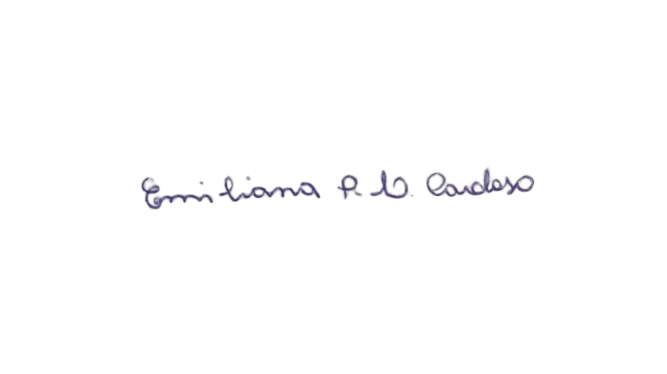 Emiliana P. V. Cardoso